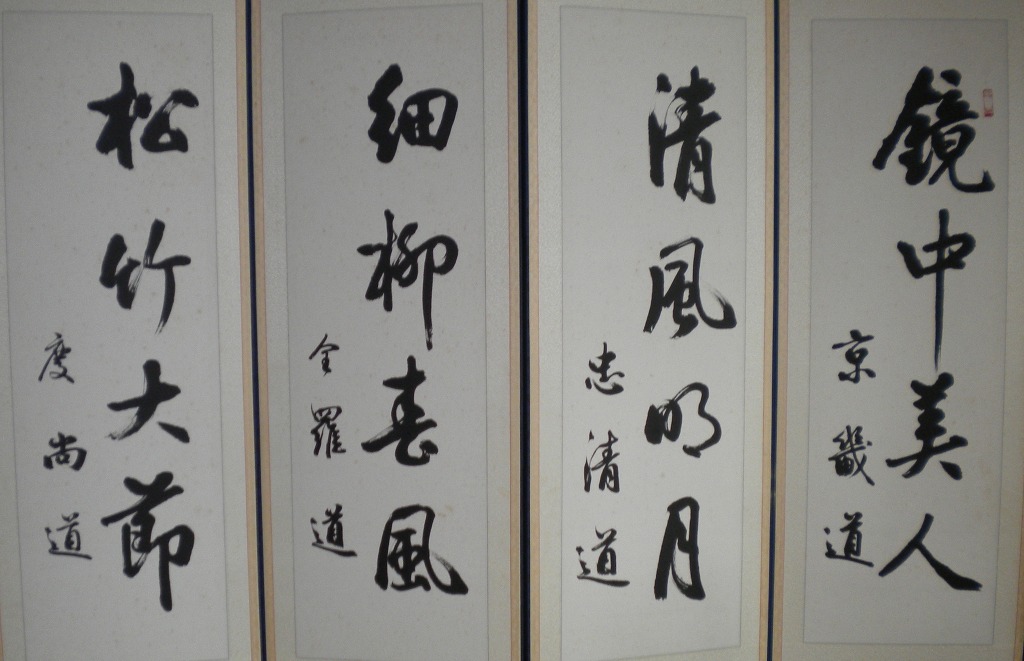 鏡中美人
京畿道
清風明月
忠清道
細柳春風
全羅道
松竹大節
慶尚道